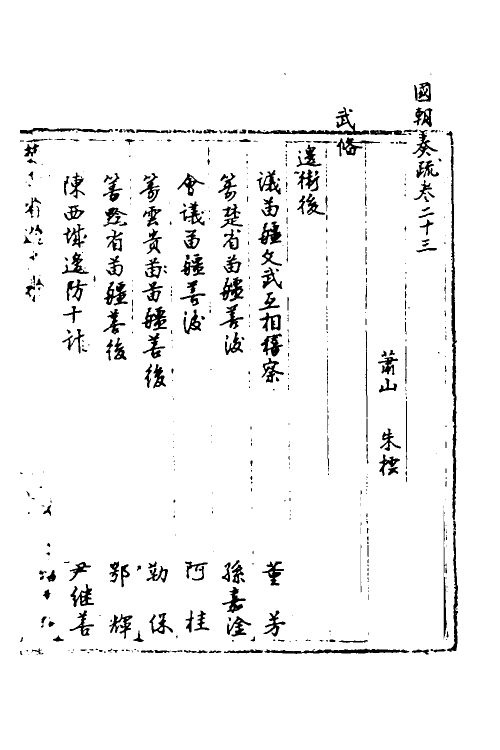 國朝奏疏卷二十三
蕭山 朱橒
武俻
邊衛後
議苗疆文武互相稽察 董芳
筹楚省苗疆善後 孫嘉淦
會議苗疆善後 阿桂
筹雲贵苗苗疆善後 勒保
筹黔省苗疆善後 鄂輝
陳西域邊防十計 尹继善